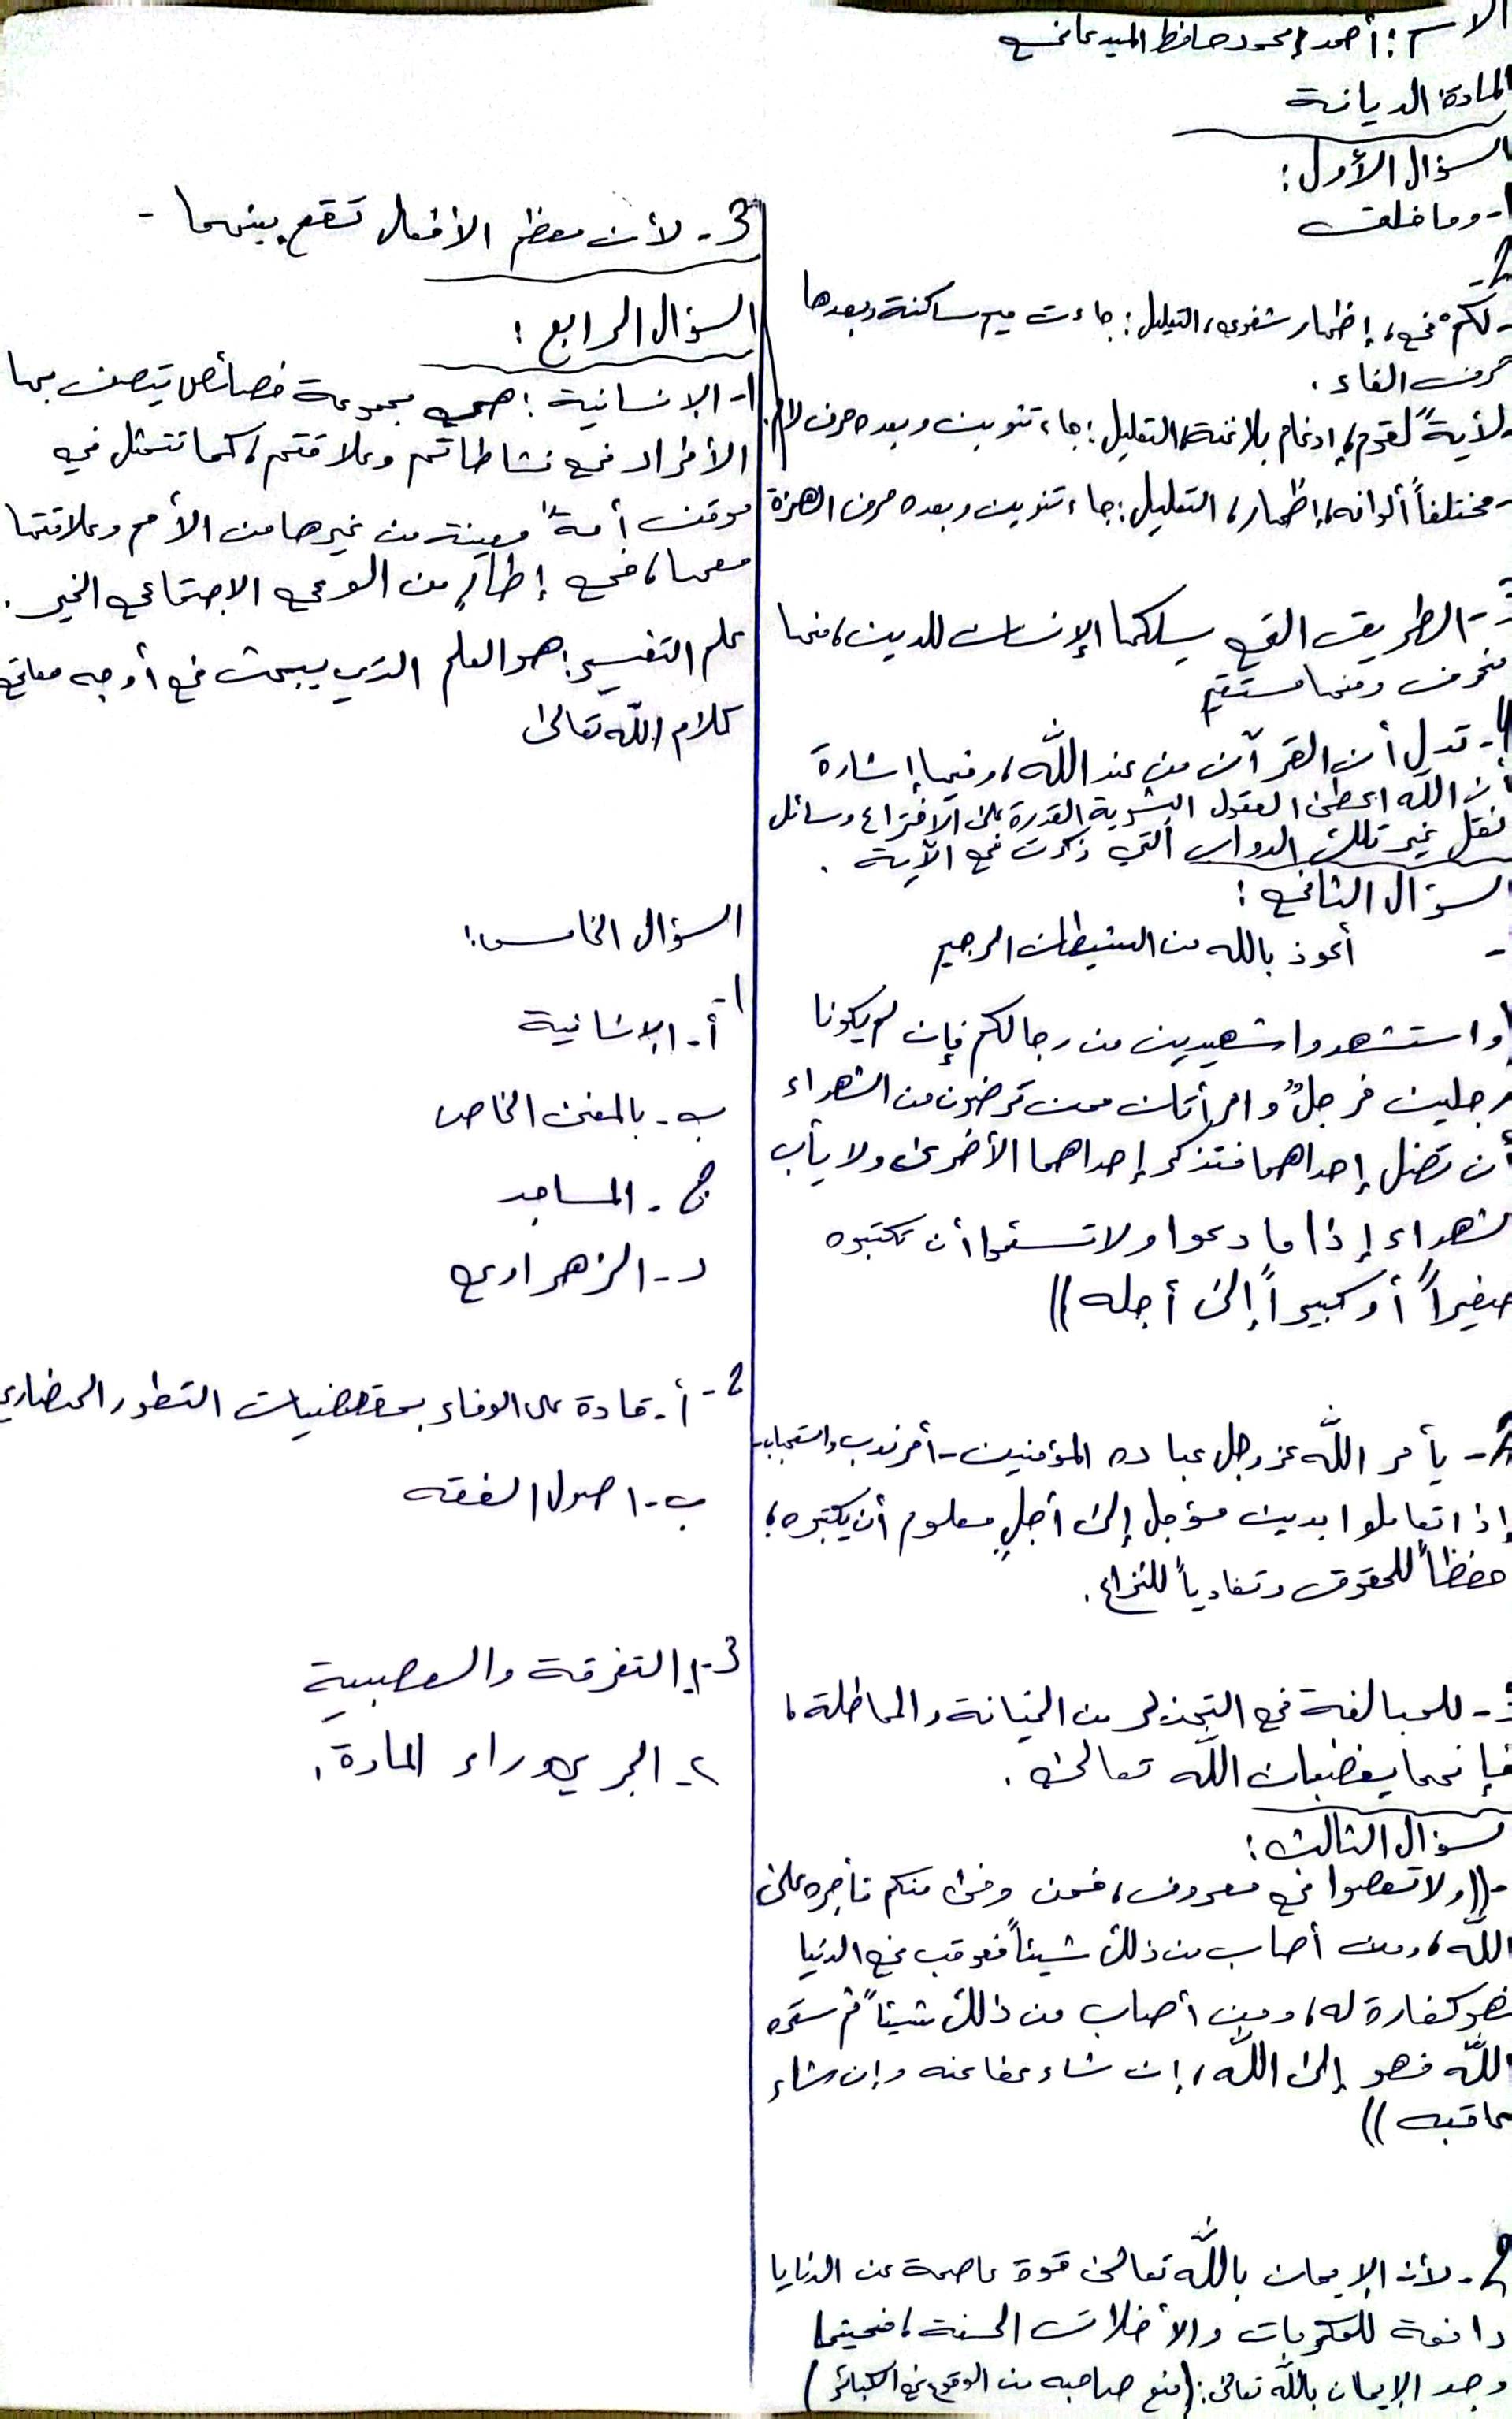 الاسم: أحمد محمود حافظ
المادة: الديانة
السؤال الأول:
1- وما خلقت
2-
- لكم في، إظهار شفوي، التعليل: جاءت ميم ساكنة وبعدها
حرف الفاء.
- لأيةً لقوم، إدغام بلا غنة، التعليل: جاء تنوين وبعده حرف لام.
- مختلفاً ألوانه، إظهار، التعليل: جاء تنوين وبعده حرف الهمزة
3- الطريق التي يسلكها الإنسان للدين، منها
منحرف ومنها مستقيم
4- تدل أن القرآن من عند الله، وفيها إشارة
أن الله اعطى العقول البشرية القدرة على الاختراع وسائل
نقل غير تلك الدواب التي ذكرت في الآية.
السؤال الثاني:
- أعوذ بالله من الشيطان الرجيم
واستشهدوا شهيدين من رجالكم فإن لم يكونا
رجلين فرجلٌ وامرأتان ممن ترضون من الشهداء
أن تضل إحداهما فتذكر إحداهما الأخرى ولا يأب
الشهداء إذا ما دعوا ولا تسئموا أن تكتبوه
صغيراً أو كبيراً إلى أجله))
2- يأمر الله عز وجل عباده المؤمنين - أمر ندب واستحباب -
إذا تعاملوا بدين مؤجل إلى أجلٍ معلوم أن يكتبوه،
حفظاً للحقوق وتفادياً للنزاع.
3- للمبالغة في التحذير من الخيانة والمماطلة،
فإنهما يغضبان الله تعالى.
السؤال الثالث:
- ((ولا تعصوا في معروف، فمن وفى منكم فأجره على
الله، ومن أصاب من ذلك شيئاً فعوقب في الدنيا
فهو كفارة له، ومن أصاب من ذلك شيئاً ثم ستره
الله فهو إلى الله، إن شاء عفا عنه وإن شاء
عاقبه))
2- لأن الإيمان بالله تعالى قوة عاصمة عن الدنايا
دافعة للمكرمات والأخلاق الحسنة، فحيثما
وجد الإيمان بالله تعالى: (منع صاحبه من الوقوع في الكبائر)
3- لأن معظم الأفعال تقع بينهما -
السؤال الرابع:
1- الإنسانية: هي مجموعة خصائص يتصف بها
الأفراد في نشاطاتهم وعلاقتهم، كما تتمثل في
موقف أمةٍ معينة من غيرها من الأمم وعلاقتها
معها، في إطارٍ من الوعي الاجتماعي الخير.
علم التفسير: هو العلم الذي يبحث في أوجه معاني
كلام الله تعالى
السؤال الخامس:
1-
أ- الإنسانية
ب- بالمعنى الخاص
ج- المساجد
د- الزهراوي
2- أ- قادة على الوفاء بمقتضيات التطور الحضاري
ب- اصول الفقه
3- 1. التفرقة والعصبية
2- الجري وراء المادة.